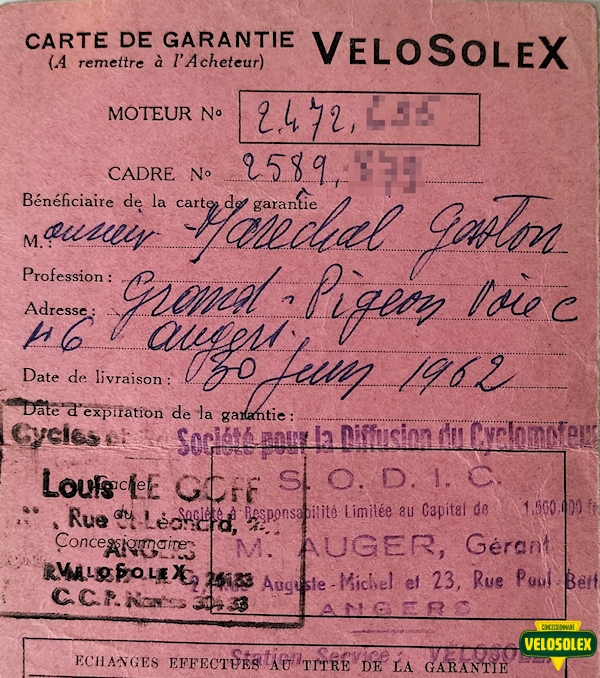 CARTE DE GARANTIE VELOSOLEX
(A remettre à l'Acheteur)
MOTEUR No 2.472.
CADRE No 2589.
Bénéficiaire de la carte de garantie
M.: onsieur Maréchal Gaston
Profession:
Adresse: Grand-Pigeon Voie C
N°6 Angers.
Date de livraison: 30 Juin 1962
Date d'expiration de la garantie:
Cycles et
Société pour la Diffusion du Cyclomoteur
S.O.D.I.C.
Société à Responsabilité Limitée au Capital de
M. AUGER, Gérant
Rue Auguste-Michel et 23, Rue Paul-Bert
ANGERS
Station Service: VELOSOLEX
Cachet
du
Concessionnaire
Louis LE GOFF
Rue St-Léonard,
ANGERS
VELOSOLEX
C.C.P. Nantes
ECHANGES EFFECTUES AU TITRE DE LA GARANTIE
CONCESSIONNAIRE
VELOSOLEX